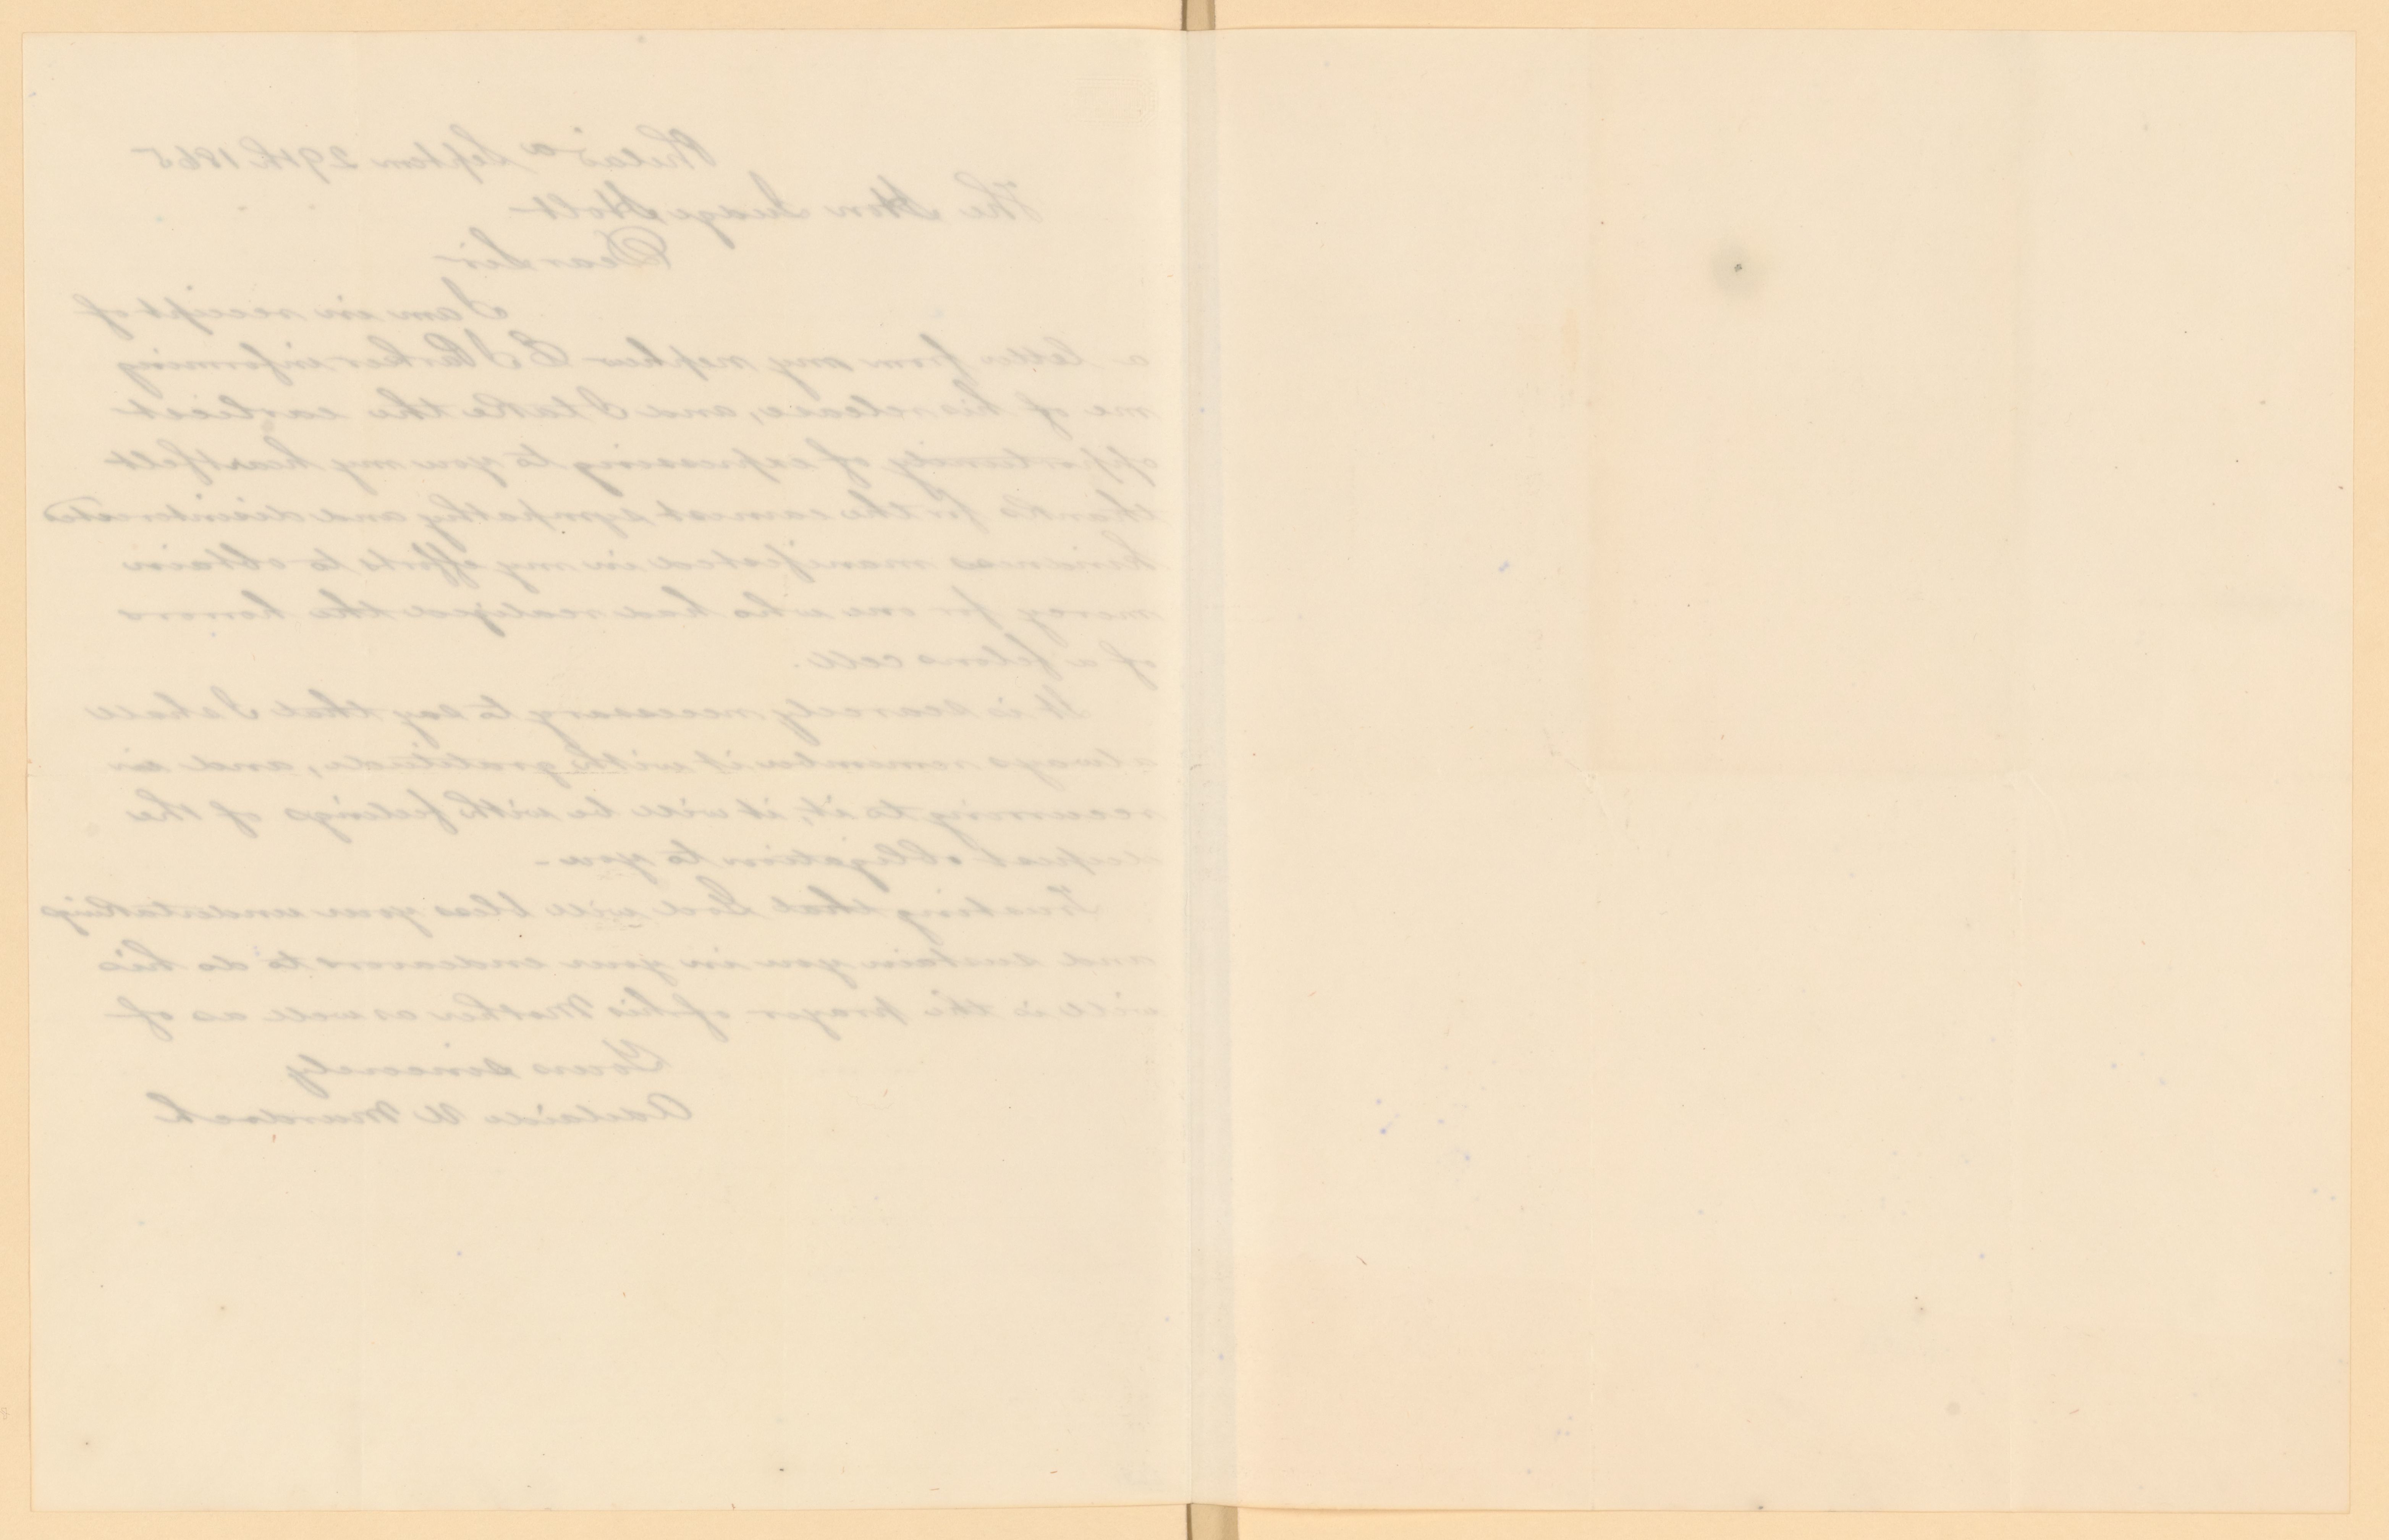 Philad.a Septem 29th 1865
The Hon Judge Holt
Dear Sir
I am in receipt of
a letter from my nephew informing
me of his release, and I take the earliest
opportunity of expressing to you my heartfelt
thanks for the earnest sympathy and disinterested
kindness manifested in my efforts to obtain
mercy for one who had realized the horrors
of a felons cell.
It is scarcely necessary to say that I shall
always remember it with gratitude, and in
recurring to it, it will be with feelings of the
deepest obligation to you -
Trusting that God will bless your undertakings
and sustain you in your endeavors to do his
will is the prayer of his Mother as well as of
Yours sincerely
Adelaide Murdoch